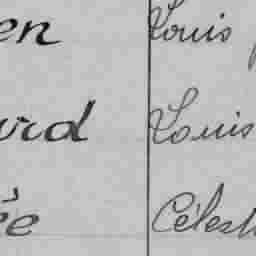 en Louis
ard Louis
ée Célest